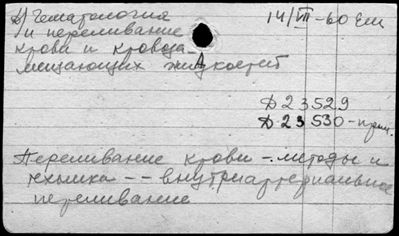 Гематология 14/VII-60 Еш
и переливание
крови и кровоза-
мещающих жидкостей
Д 23529
Д 23530-прим.
Переливание крови - методы и
техника -- внутриартериальное
переливание